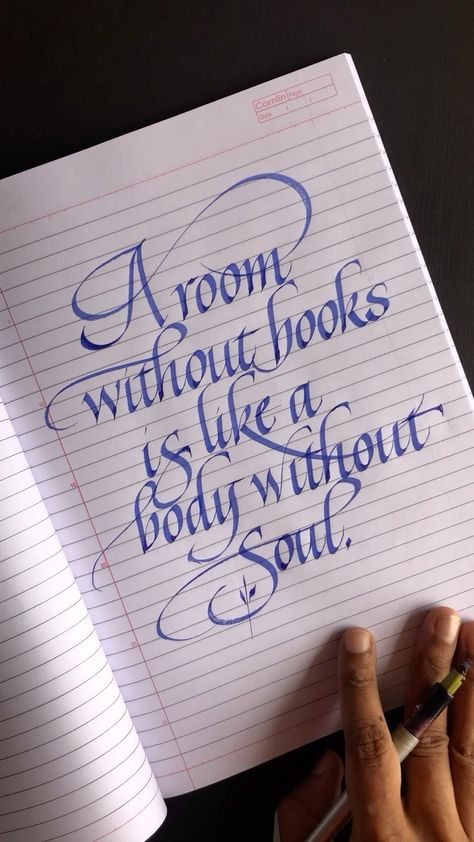 Camlin Page
Date / /
A room
without books
is like a
body without
Soul.